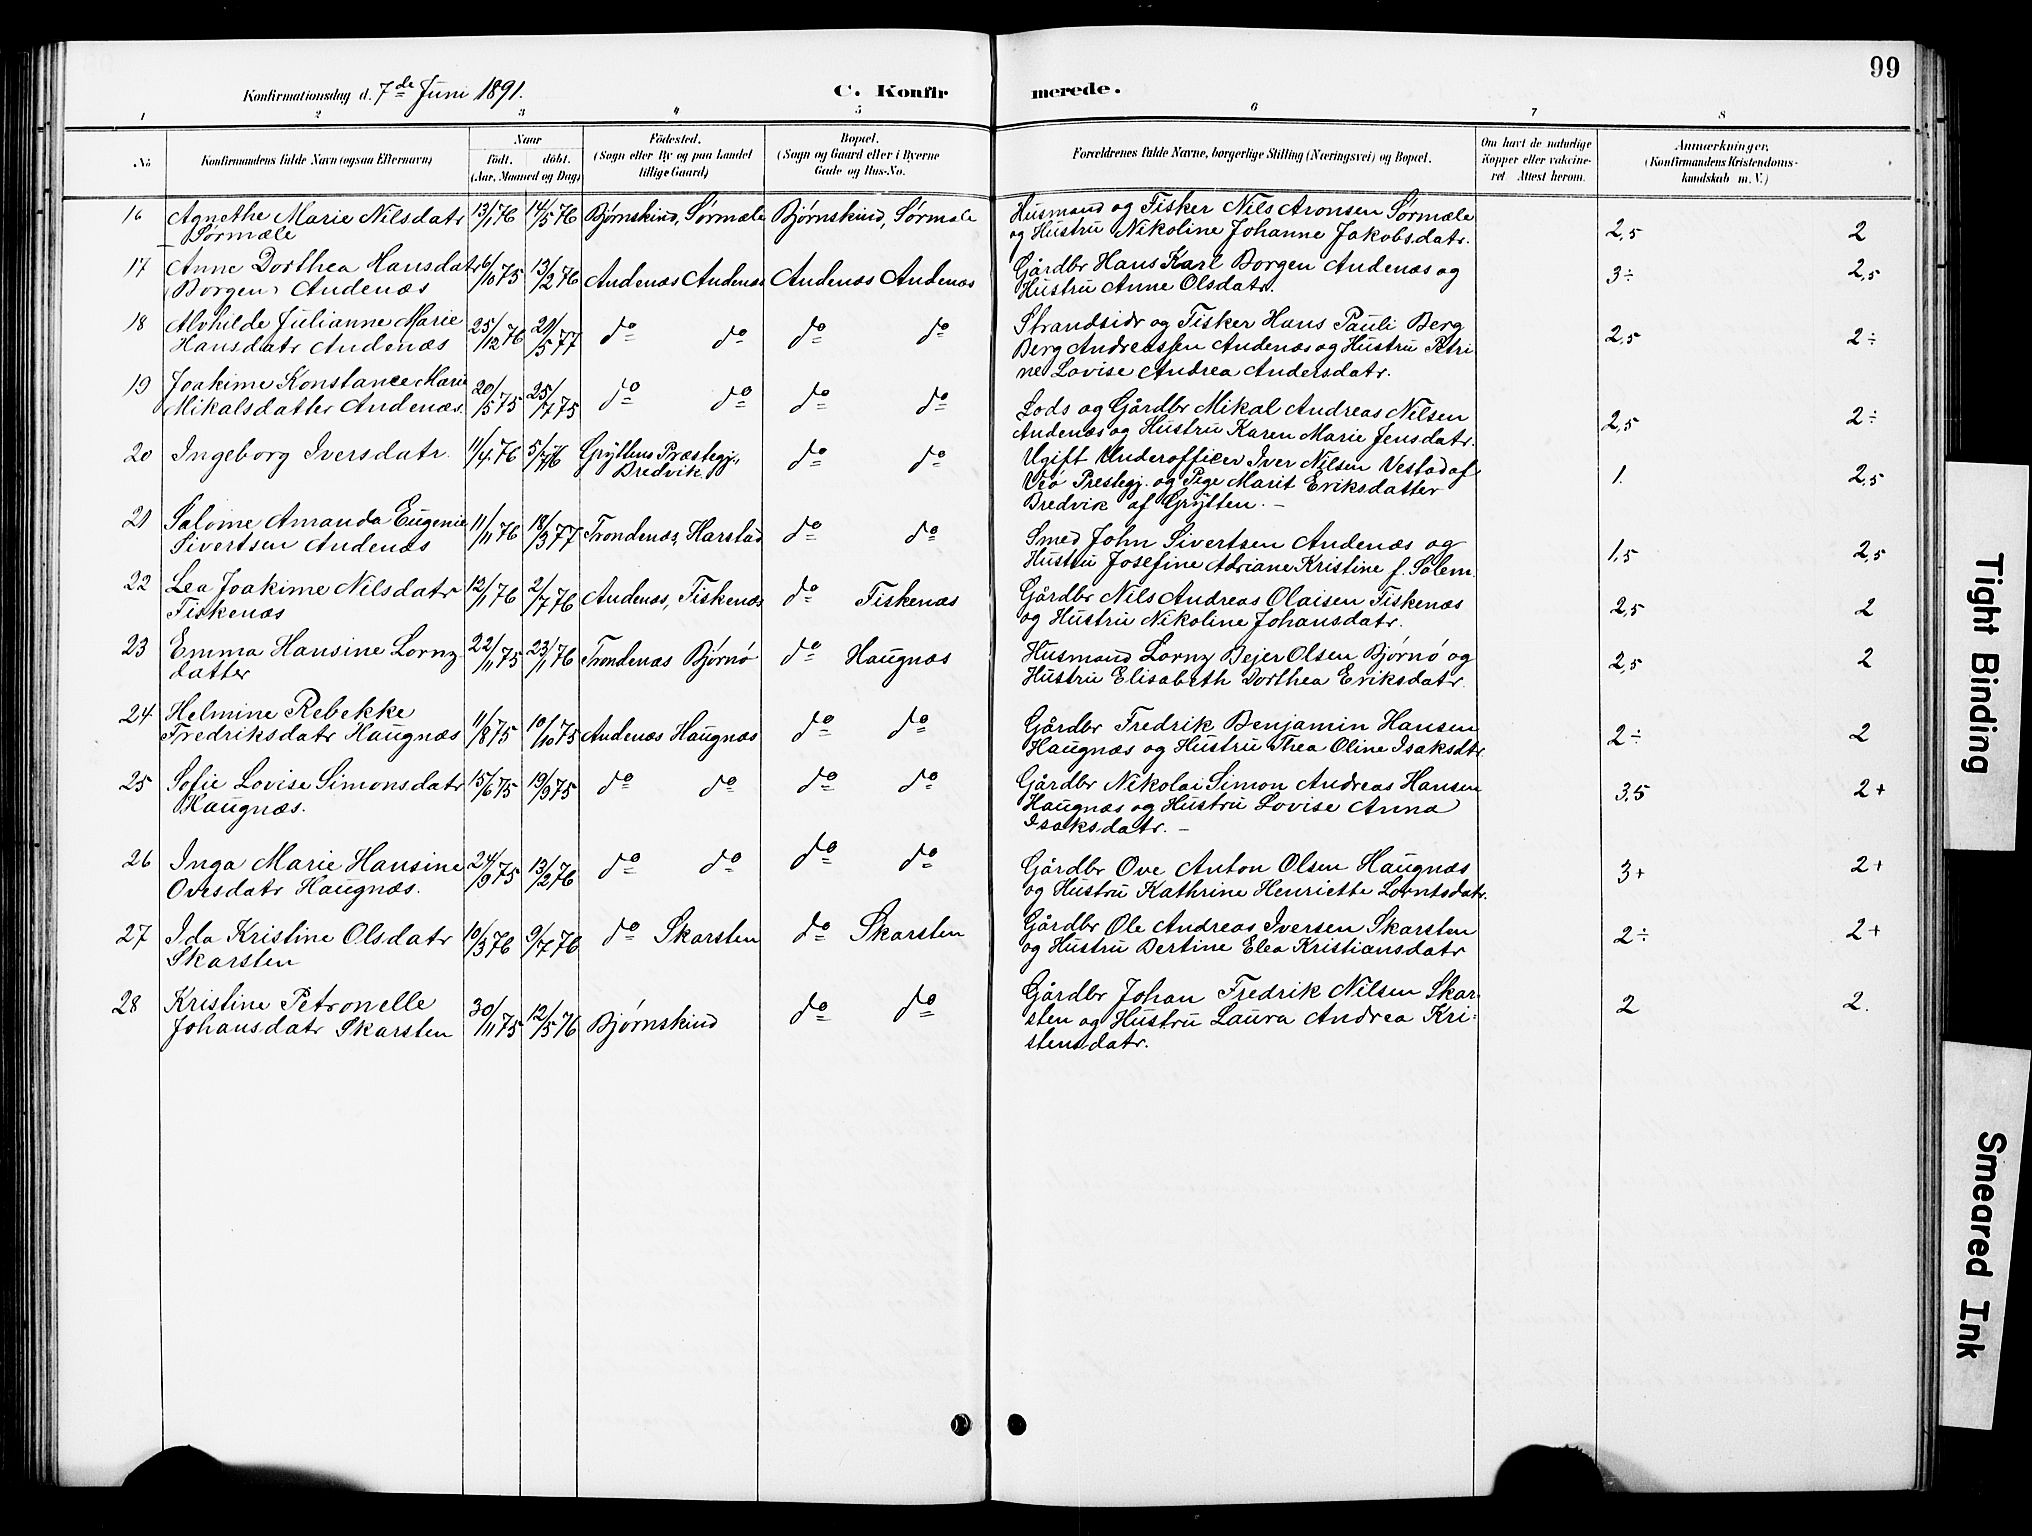 99
Konfirmationsdag d. 7de Juni 1891. C. Konfirmerede.
1 2 3 4 5 6 7 8
No Konfirmandens fulde Navn (ogsaa Efternavn) Naar Födt. döbt. (Aar, Maaned og Dag) Födested. (Sogn eller By og paa Landet tillige Gaard) Bopæl. (Sogn og Gaard eller i Byerne Gade og Hus-No. Forældrenes fulde Navne, borgerlige Stilling (Næringsvei) og Bopæl. Om havt de naturlige Kopper eller vakcineret. Attest herom. Anmærkninger, (Konfirmandens Kristendomskundskab m. V.)
16 Agnethe Marie Nilsdatr 13/1 76 14/5 76 Bjørnskind, Sørmæle Bjørnskind, Sørmæle Husmand og Fisker Nils Aronsen Sørmæle
Sørmæle og Hustru Nikoline Johanne Jakobsdatr. 2,5 2
17 Anne Dorthea Hansdatr 6/10 75 13/2 76 Andenæs Andenæs Andenæs Andenæs Gårdbr Hans Karl Borgen Andenæs og
(Borgen) Andenæs Hustru Anne Olsdatr. 3÷ 2,5
18 Alvhilde Julianne Marie 25/12 76 21/5 77 do do do do Strandsidr og Fisker Hans Pauli Berg
Hansdatr Andenæs Berg Andreassen Andenæs og Hustru Petri 2,5 2÷
ne Lovise Andrea Andersdatr.
19 Joakime Konstance Marie 20/5 75 25/7 75 do do do do Lods og Gårdbr Mikal Andreas Nilsen
Mikalsdatter Andenæs. Andenæs og Hustru Karen Marie Jensdatr. 2,5 2÷
20 Ingeborg Iversdatr. 11/4 76 5/6 76 Gryttens Præstegj., do do Ugift Underofficer Iver Nilsen Vestad af
Bredvik. Veø Prestegj. og Pige Marit Eriksdatter 1. 2,5
Bredvik af Grytten. –
21 Salome Amanda Eugenie 11/11 76 18/3 77 Trondenæs, Harstad do do Smed John Sivertsen Andenæs og
Sivertsen Andenæs Hustru Josefine Adriane Kristine f. Solem. 1,5 2,5
22 Lea Joakime Nilsdatr 12/1 76 2/7 76 Andenæs, Fiskenæs do Fiskenæs Gårdbr Nils Andreas Olaisen Fiskenæs
Fiskenæs og Hustru Nikoline Johansdatr. 2,5 2
23 Emma Hansine Lornz 22/11 75 23/1 76 Trondenæs Bjørnø do Haugnæs Husmand Lornz Bejer Olsen Bjørnø og
datter Hustru Elisabeth Dorthea Eriksdatr. 2,5 2
24 Helmine Rebekke 11/8 75 10/10 75 Andenæs Haugnæs do do Gårdbr Fredrik Benjamin Hansen
Fredriksdatr Haugnæs Haugnæs og Hustru Thea Oline Isaksdtr 2÷ 2
25 Sofie Lovise Simonsdatr 15/6 75 19/9 75 do do do do Gårdbr Nikolai Simon Andreas Hansen
Haugnæs. Haugnæs og Hustru Lovise Anna 3,5 2+
Isaksdatr. –
26 Inga Marie Hansine 24/9 75 13/2 76 do do do do Gårdbr Ove Anton Olsen Haugnæs
Ovesdatr Haugnæs. og Hustru Kathrine Henriette Lorntsdatr. 3+ 2+
27 Ida Kristine Olsdatr 10/3 76 9/7 76 do Skarsten do Skarsten Gårdbr Ole Andreas Iversen Skarsten
Skarsten og Hustru Bertine Elea Kristiansdatr 2÷ 2+
28 Kristine Petronelle 30/11 75 12/5 76 Bjørnskind do do Gårdbr Johan Fredrik Nilsen Skar-
Johansdatr Skarsten sten og Hustru Laura Andrea Kri- 2 2.
stensdatr.
Tight Binding
Smeared Ink